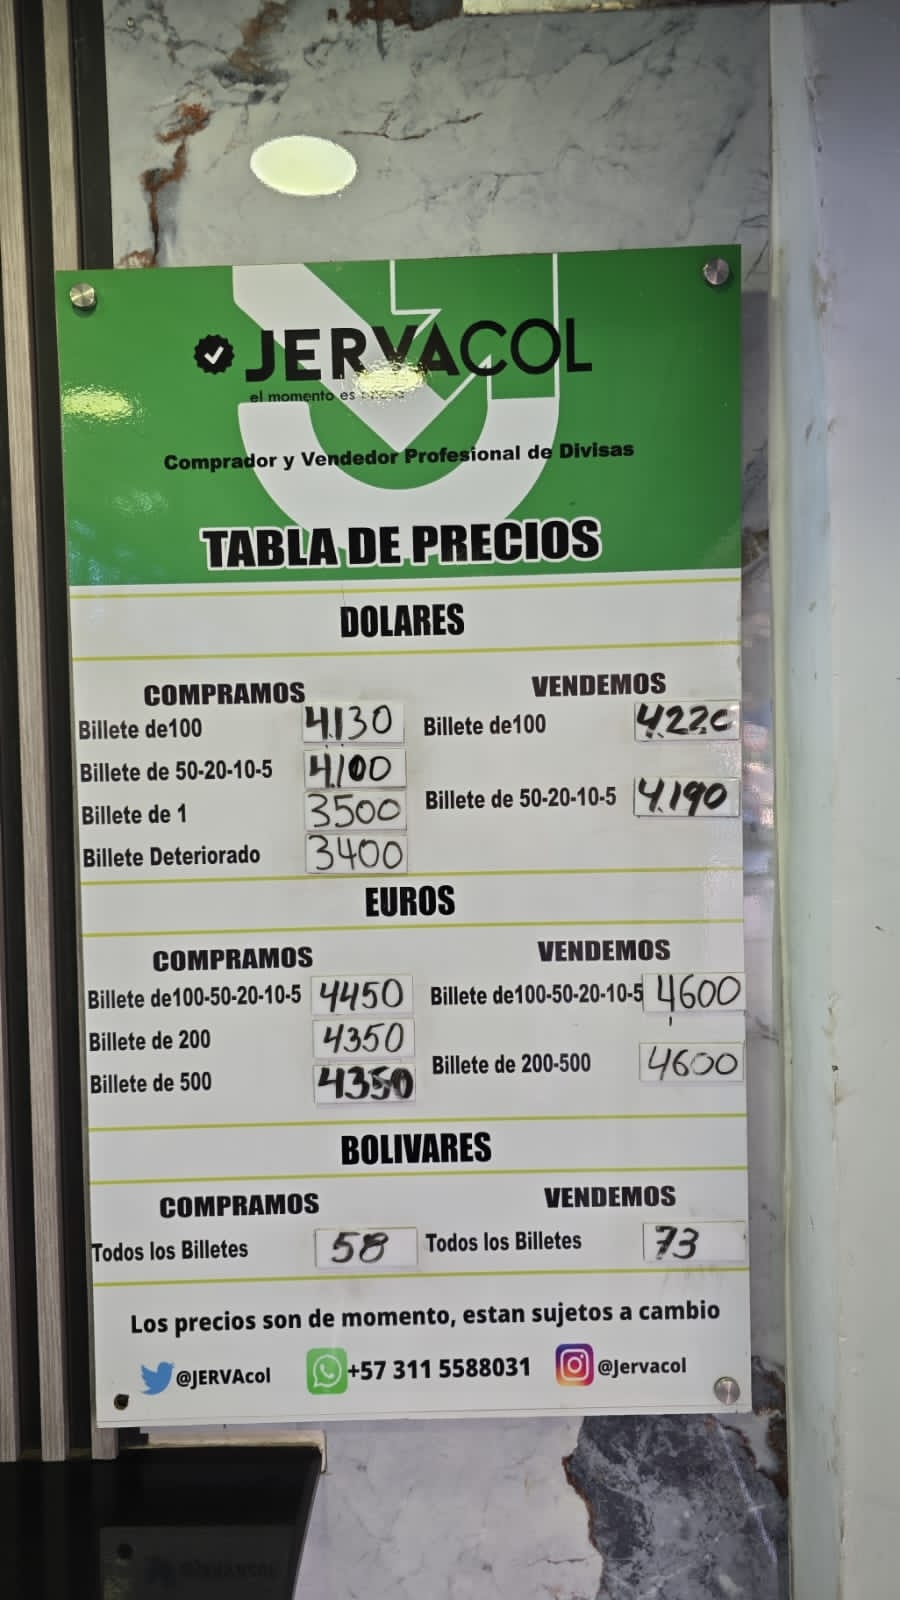 JERVACOL
el momento es
Comprador y Vendedor Profesional de Divisas
TABLA DE PRECIOS
DOLARES
COMPRAMOS VENDEMOS
Billete de100 4.130 Billete de100 4.220
Billete de 50-20-10-5 4.100 Billete de 50-20-10-5 4.190
Billete de 1 3500
Billete Deteriorado 3400
EUROS
COMPRAMOS VENDEMOS
Billete de100-50-20-10-5 4450 Billete de100-50-20-10-5 4600
Billete de 200 4350 Billete de 200-500 4600
Billete de 500 4350
BOLIVARES
COMPRAMOS VENDEMOS
Todos los Billetes 58 Todos los Billetes 73
Los precios son de momento, estan sujetos a cambio
@JERVAcol +57 311 5588031 @Jervacol